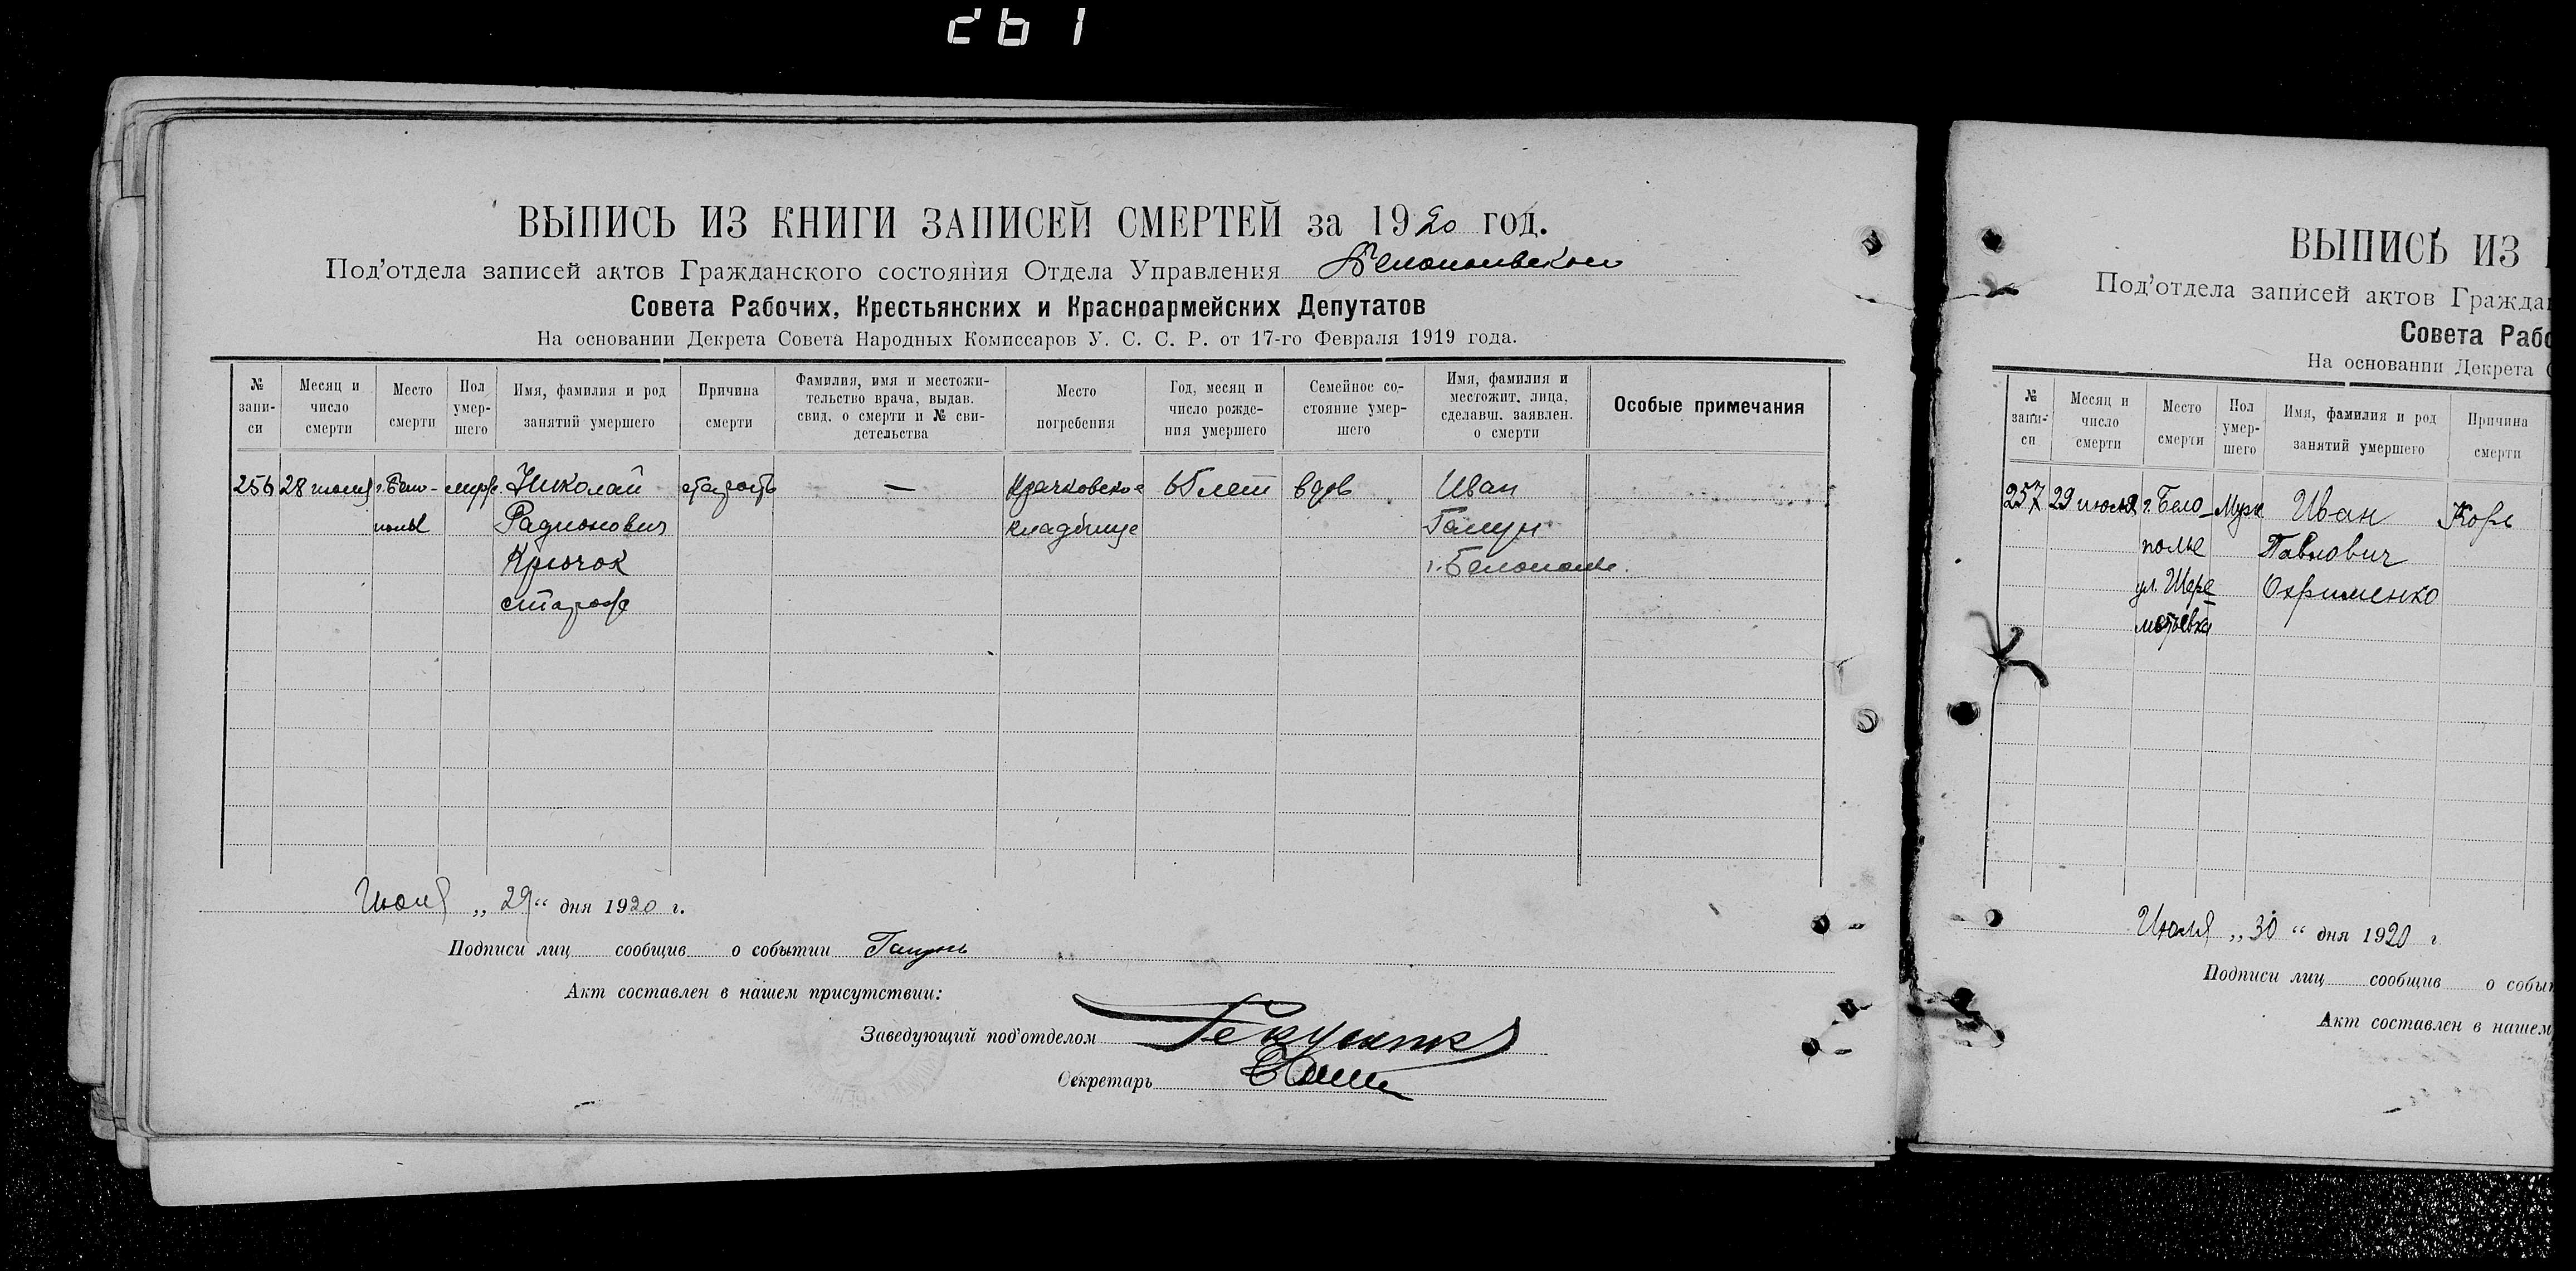 261
ВЫПИСЬ ИЗ КНИГИ ЗАПИСЕЙ СМЕРТЕЙ за 1920 год.
Под'отдела записей актов Гражданского состояния Отдела Управления
Совета Рабочих, Крестьянских и Красноармейских Депутатов
На основании Декрета Совета Народных Комиссаров У. С. С. Р. от 17-го Февраля 1919 года.
№ запи- си
Месяц и число смерти
Место смерти
Пол умер- шего
Имя, фамилия и род занятий умершего
Причина смерти
Фамилия, имя и местожи- тельство врача, выдав. свид. о смерти и № сви- детельства
Место погребения
Год, месяц и число рожде- ния умершего
Семейное со- стояние умер- шего
Имя, фамилия и местожит. лица, сделавш. заявлен. о смерти
Особые примечания
256 28 июля г. Бело- муж. Николай старость — кладбище 65 лет вдов Иван
полье Радионович
Крючок г. Белополье.
сторож
Июля „ 29 “ дня 1920 г.
Подписи лиц сообщив о событии
Акт составлен в нашем присутствии:
Заведующий под'отделом
Секретарь
ВЫПИСЬ ИЗ
Под'отдела записей актов Граждан
Совета Рабо
На основании Декрета
№ запи- си
Месяц и число смерти
Место смерти
Пол умер- шего
Имя, фамилия и род занятий умершего
Причина смерти
257 29 июля г. Бело- Муж Иван Корь
полье Павлович
ул. Шере- Охрименко
метьевка
Июля „ 30 “ дня 1920 г
Подписи лиц сообщив о событ
Акт составлен в нашем